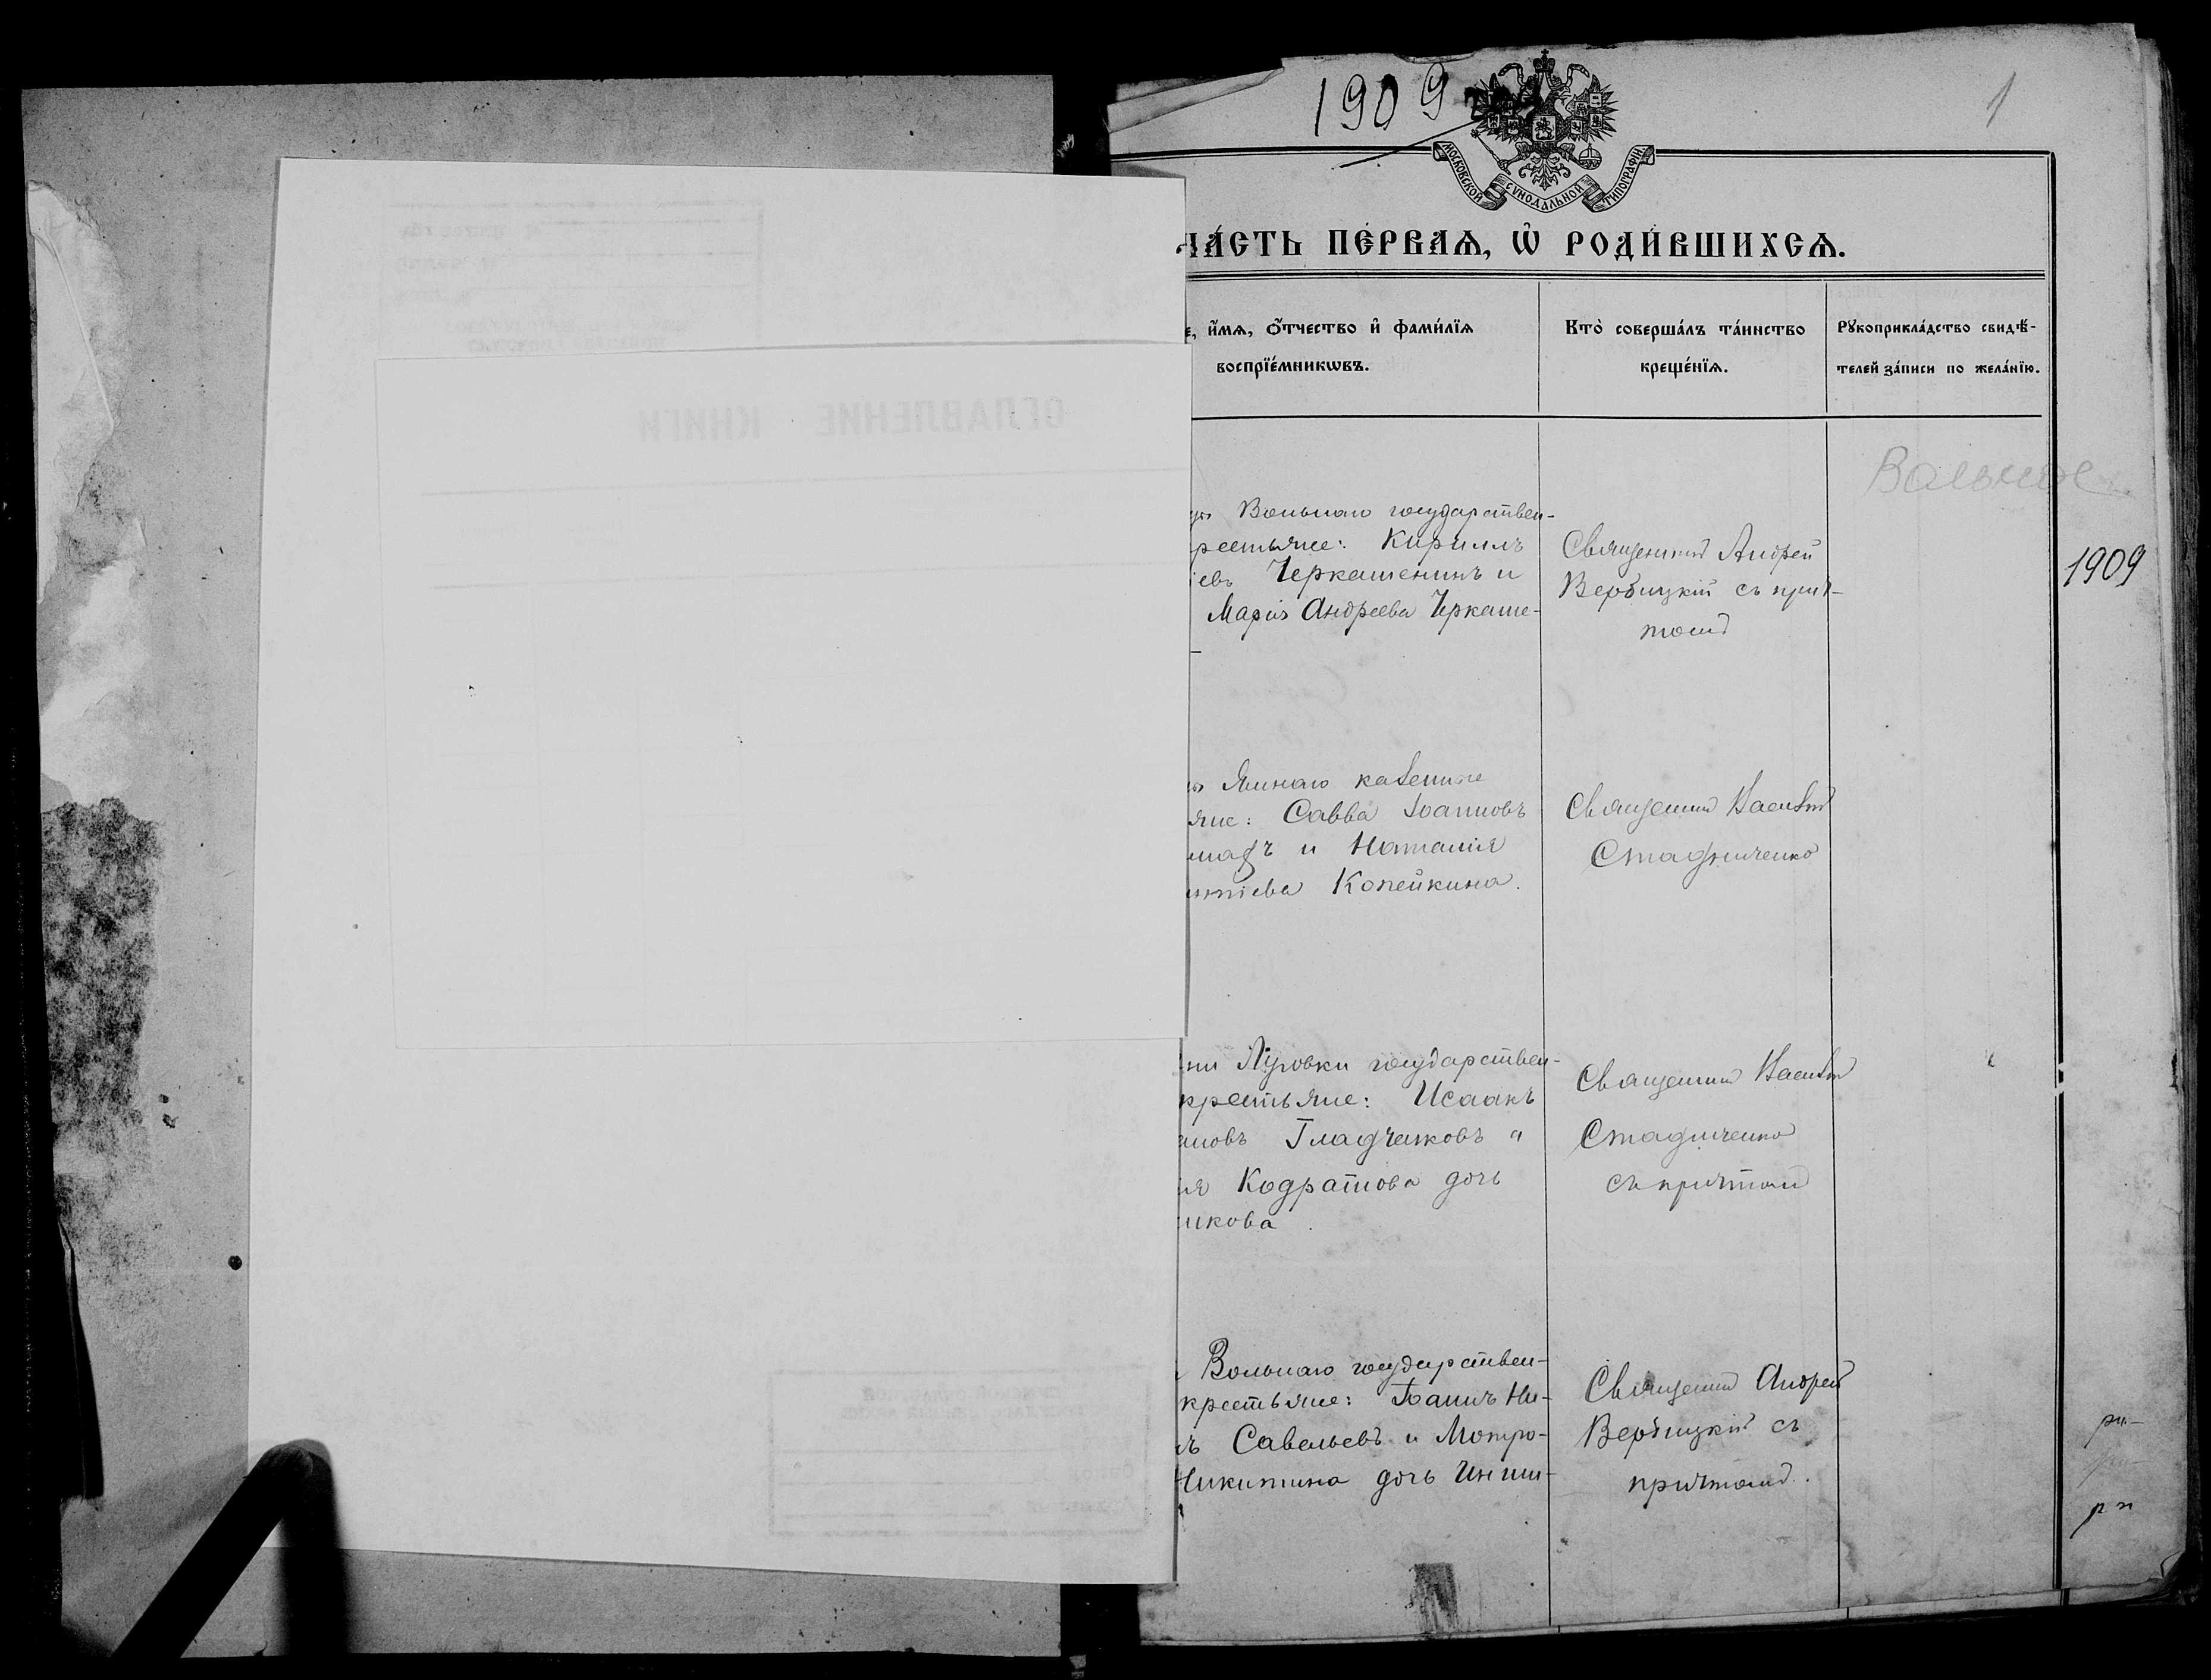 1909
1
МОСКОВСКОЙ СУНОДАЛЬНОЙ ТИПОГРАФІИ
ЧА́СТЬ ПЕ́РВАѦ, Ѡ҆ РОДИ́ВШИХСѦ.
е, и҆́мѧ, ѻ҆́тчество и҆ фами́лїѧ
воспрїе́мникѡвъ.
Кто̀ соверша́лъ та́инство
креще́нїѧ.
Рꙋкоприкла́дство свидѣ́-
телей за́писи по жела́нїю.
Вольное
Вольнаго государствен-
рестьяне: Кириллъ
евъ Черкашенинъ и
Марія Андреева Черкаше-
Священникъ Андрей
Вербицкій съ прич-
томъ
1909
Ямнаго казенные
яне: Савва Іоанновъ
и Наталія
Копейкина.
Священникъ Василій
Стадниченко
Луговки государствен-
крестьяне: Исаакъ
новъ Гладченковъ и
Кодратова дочь
икова
Священникъ Василій
Стадниченко
съ причтомъ
Вольнаго государствен-
крестьяне: Іоаннъ Ни-
Савельевъ и Мотро-
Никитина дочь
Священникъ Андрей
Вербицкій съ
причтомъ.
ОГЛАВЛЕНИЕ КНИГИ